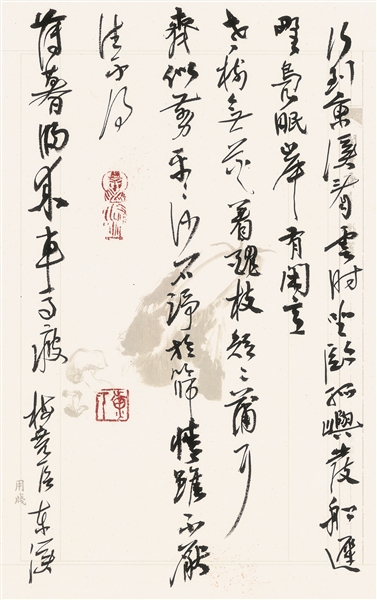 行到東溪看雲時坐臨孤嶼發船遲
野鳧眠岸有閑意
老樹無花着醜枝短々蒲耳
齊似剪平々沙石淨於篩情雖不厭
住不得
薄暮歸來車馬疲 梅堯臣東溪
用牋